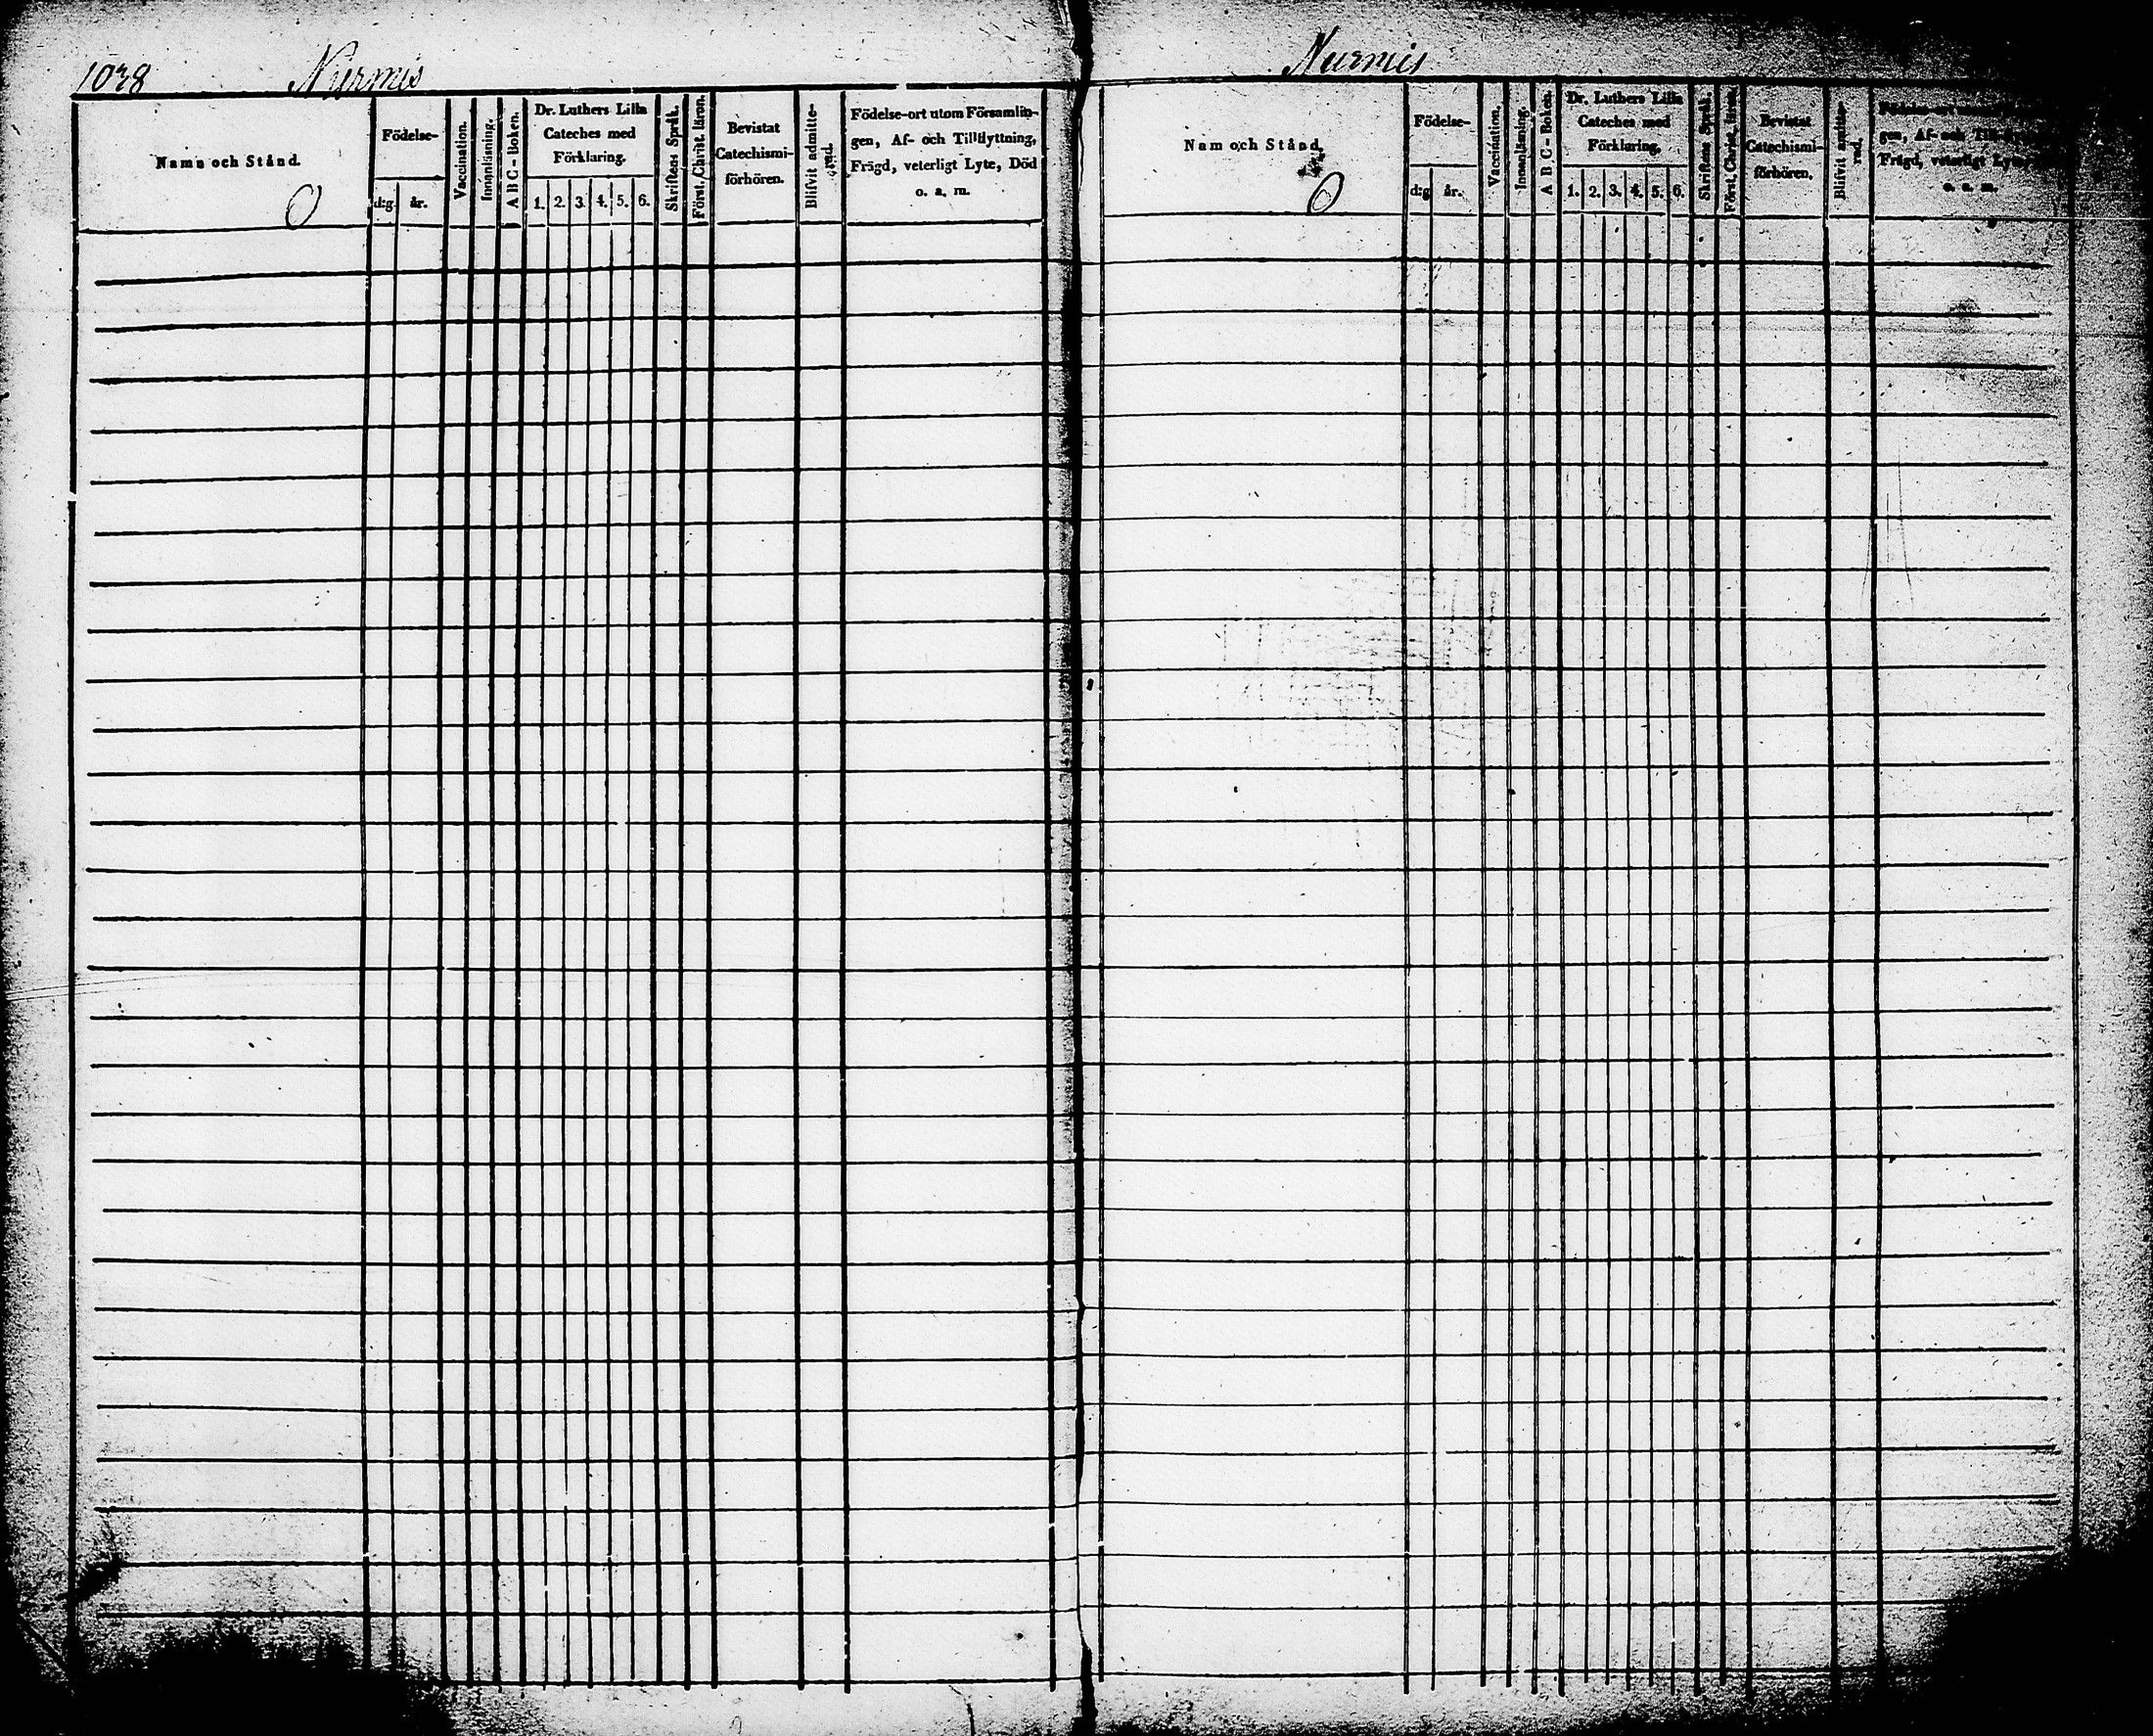 1028 Nurmis
Namn och Stånd.
O
Födelse-
d:g. år.
Vaccination.
Innanläsning.
A B C - Boken.
Dr. Luthers Lilla
Cateches med
Förklaring.
1. 2. 3. 4. 5. 6.
Skriftens Språk.
Först. Christ. läron.
Bevistat
Catechismi-
förhören.
Blifvit admitte-
rad.
Födelse-ort utom Församlin-
gen, Af- och Tillflyttning,
Frägd, veterligt Lyte, Död
o. a. m.
Nurmis
Nam och Stånd.
O
Födelse-
d:g år.
Vaccination.
Innanläsning.
A B C - Boken.
Dr. Luthers Lilla
Cateches med
Förklaring.
1. 2. 3. 4. 5. 6.
Skriftens Språk.
Först. Christ. läron.
Bevistat
Catechismi-
förhören.
Blifvit admitte-
rad.
gen, Af- och
Frägd, veterligt
o. a. m.